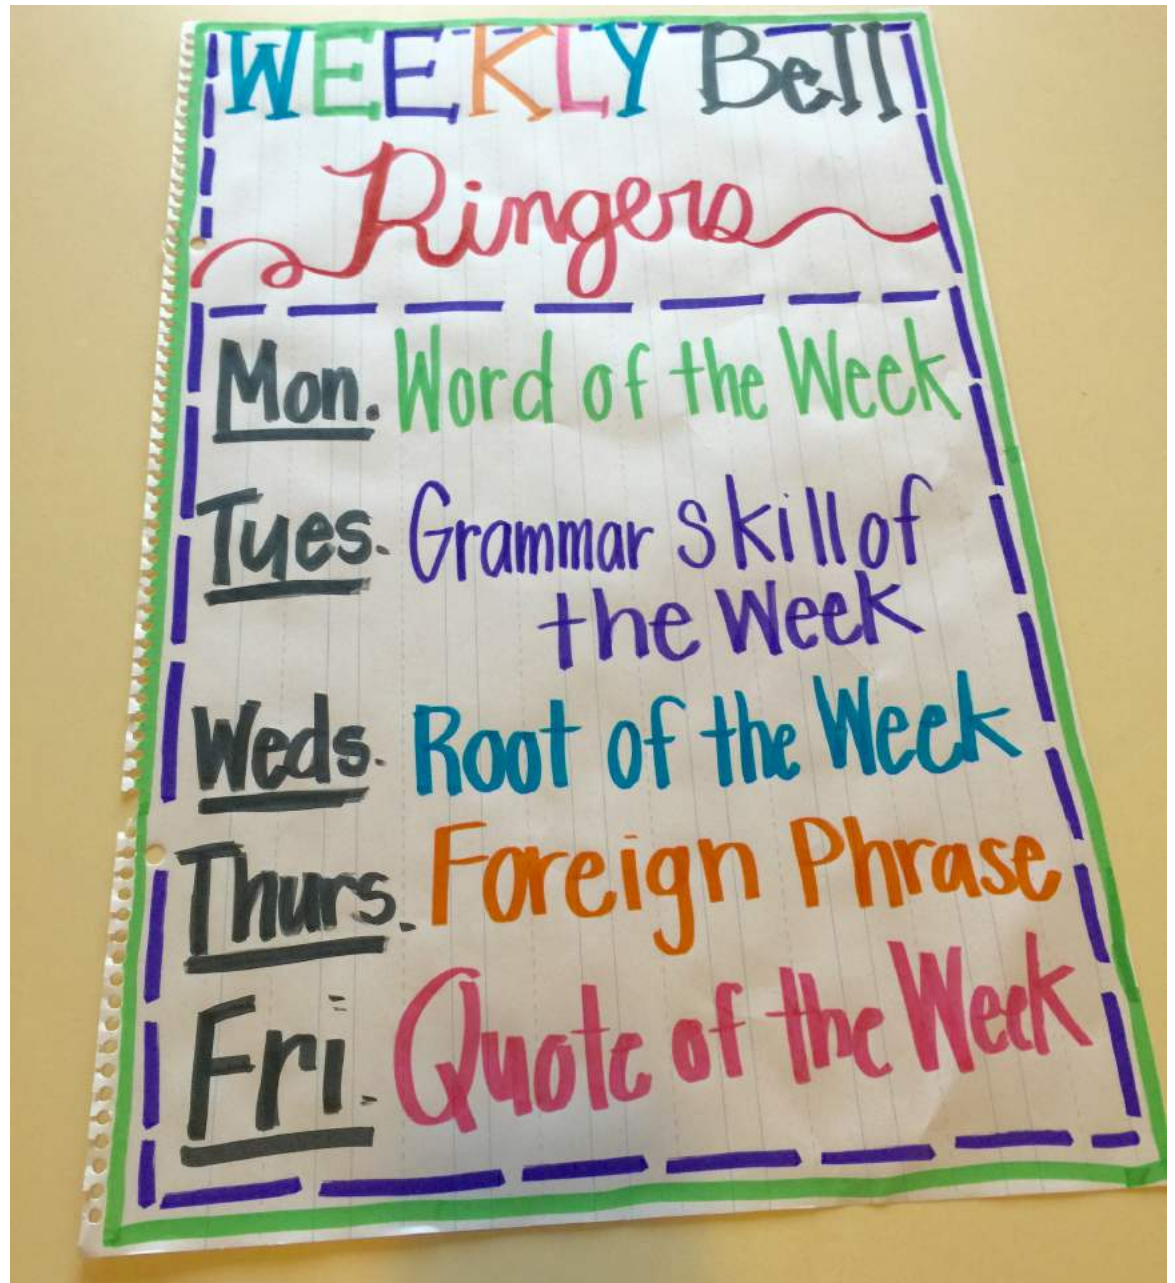 WEEKLY Bell
Ringers
Mon. Word of the Week
Tues. Grammar Skill of
the Week
Weds. Root of the Week
Thurs. Foreign Phrase
Fri. Quote of the Week